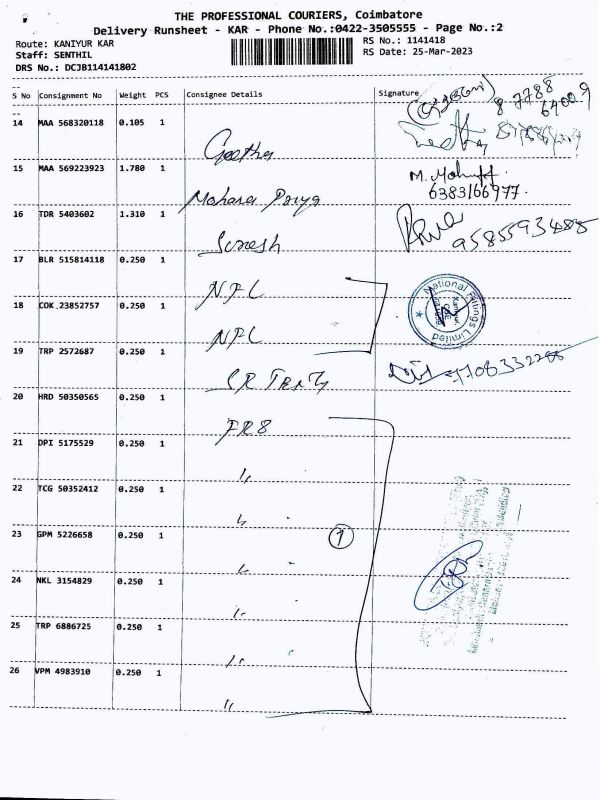 THE PROFESSIONAL COURIERS, Coimbatore
Delivery Runsheet - KAR - Phone No.:0422-3505555 - Page No.:2
Route: KANIYUR KAR
RS No.: 1141418
Staff: SENTHIL
RS Date: 25-Mar-2023
DRS No.: DCJB114141802
S No Consignment No Weight PCS Consignee Details Signature
8 7788
64009
14 MAA 568320118 0.105 1
Geetha
15 MAA 569223923 1.780 1
M.
6383166977
Mohana Priya
16 TDR 5403602 1.310 1
9585593488
Suresh
17 BLR 515814118 0.250 1
NFL
National Fittings Limited
Kaniyur
18 COK 23852757 0.250 1
NFL
19 TRP 2572687 0.250 1
SR
20 HRD 50350565 0.250 1
FR8
21 DPI 5175529 0.250 1
"
22 TCG 50352412 0.250 1
"
23 GPM 5226658 0.250 1
1
"
24 NKL 3154829 0.250 1
"
25 TRP 6886725 0.250 1
"
26 VPM 4983910 0.250 1
"